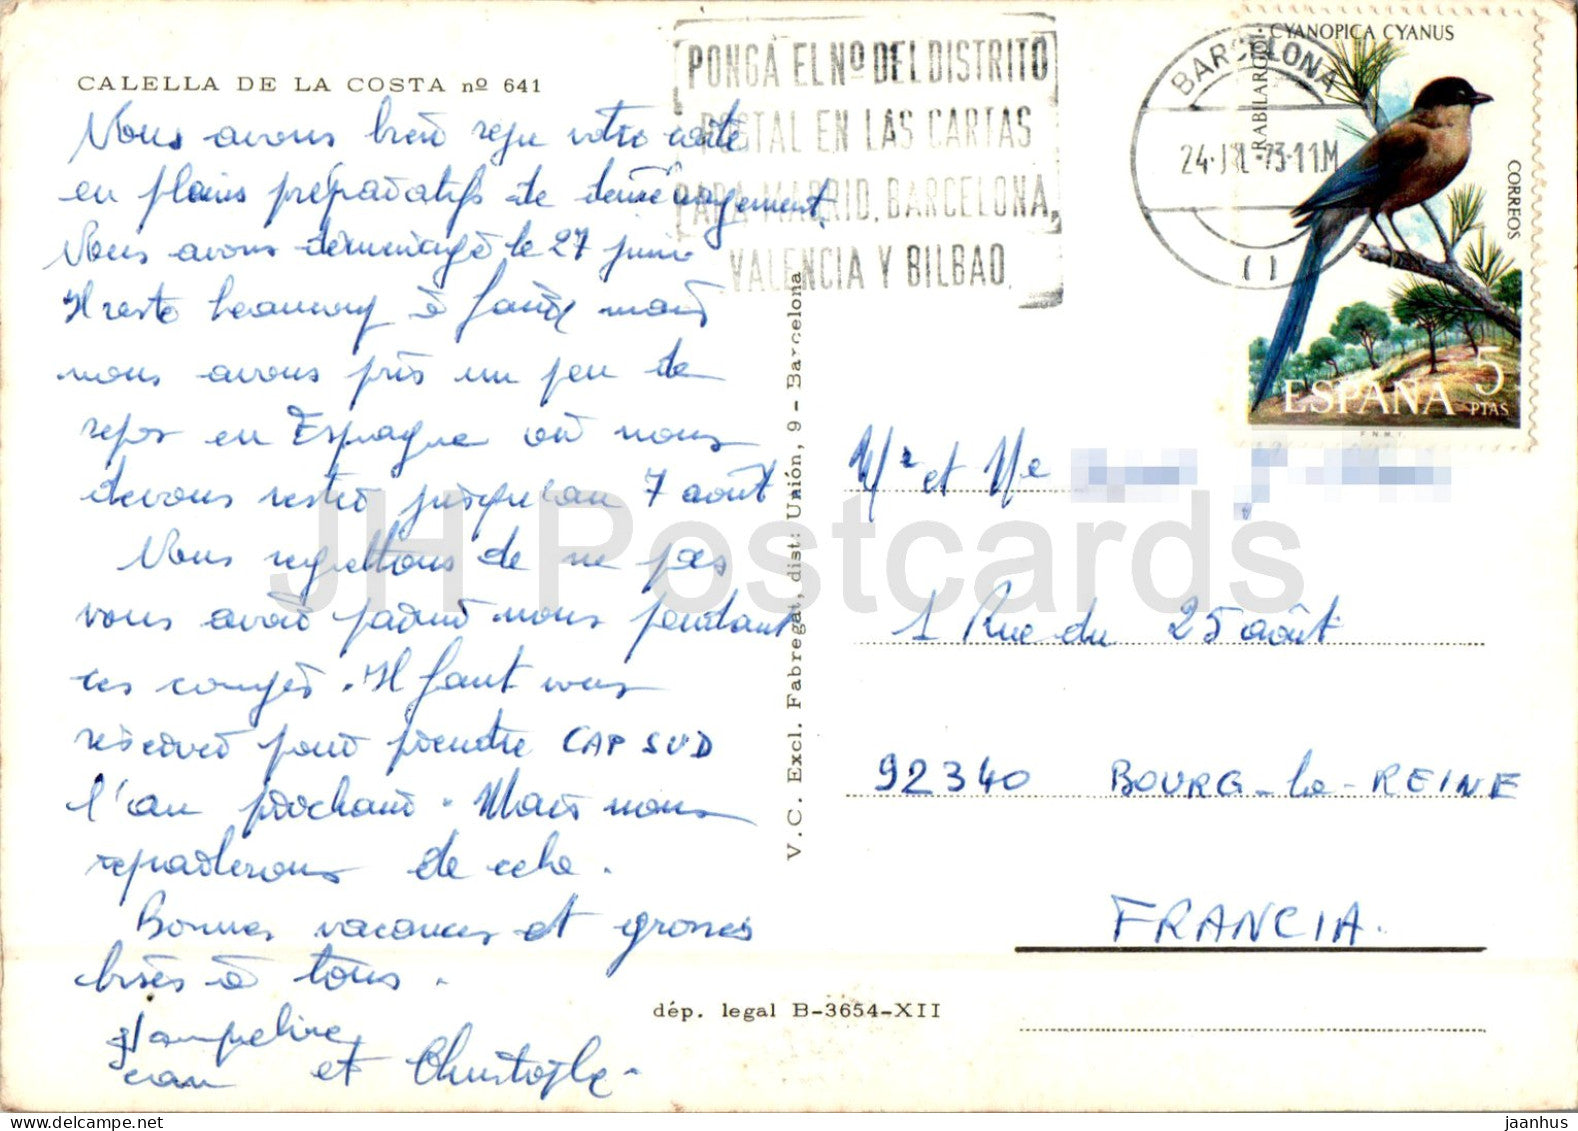 CALELLA DE LA COSTA nº 641
Nous avons bien reçu votre carte
en pleins préparatifs de déménagement.
Nous avons déménagé le 27 juin
Il reste beaucoup à faire mais
nous avons pris un peu de
repos en Espagne où nous
devons rester jusqu'au 7 août
Nous regrettons de ne pas
vous avoir parmi nous pendant
ces congés. Il faut vous
réserver pour prendre CAP SUD
l'an prochain. Mais nous
reparlerons de cela.
Bonnes vacances et grosses
bises à tous.
Jacqueline
Jean et Christophe.
V.C. Excl. Fabregat, dist: Unión, 9 - Barcelona
dép. legal B-3654-XII
PONGA EL Nº DEL DISTRITO
POSTAL EN LAS CARTAS
PARA MADRID, BARCELONA,
VALENCIA Y BILBAO.
BARCELONA
24·JUL·73·11M
( )
CYANOPICA CYANUS
RABILARGO
CORREOS
ESPAÑA 5
PTAS
F.N.M.T.
Mr et Me
1 Rue du 25 août
92340 BOURG-la-REINE
FRANCIA.
JH Postcards
jaanhus @ delcampe.net